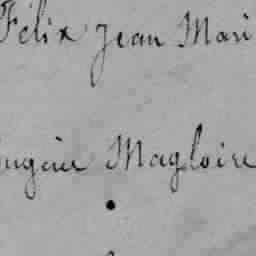 Félix Jean Mari
ugène Magloire